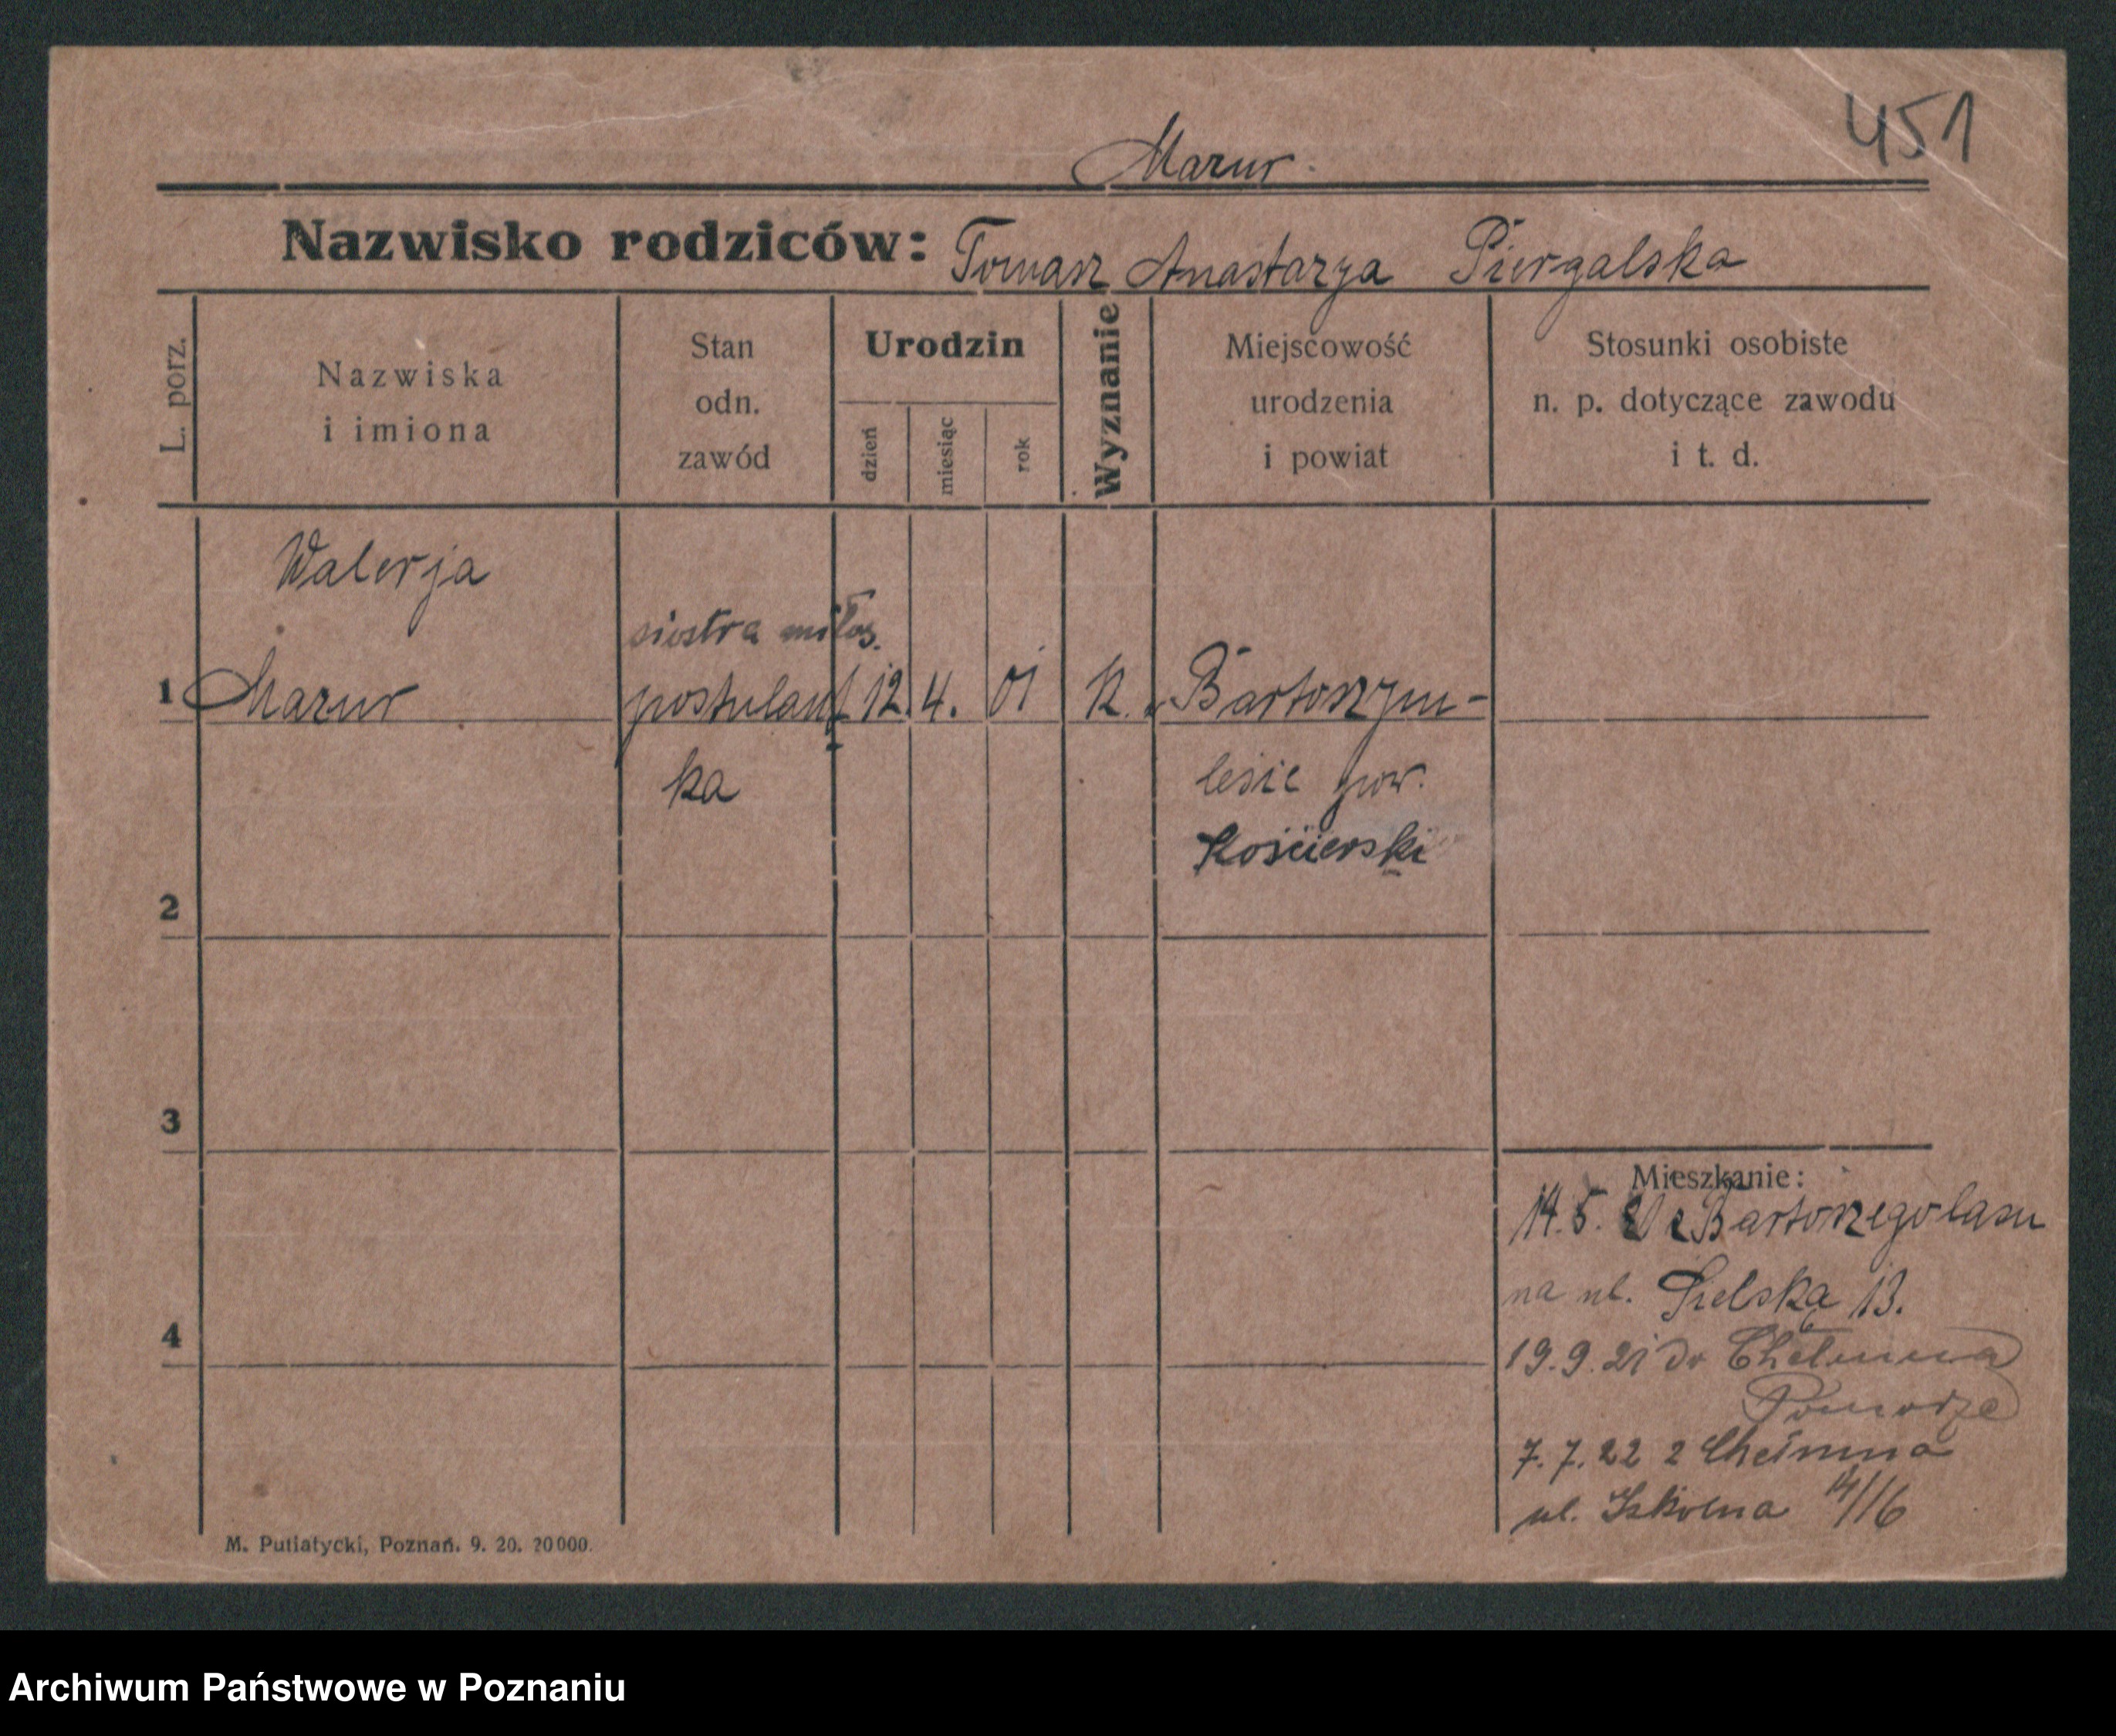 451
Mazur.
Nazwisko rodziców: Tomasz Anastazya Piergalska
L. porz.
Nazwiska
i imiona
Stan
odn.
zawód
Urodzin
dzień
miesiąc
rok
Wyznanie
Miejscowość
urodzenia
i powiat
Stosunki osobiste
n. p. dotyczące zawodu
i t. d.
Walerja
siostra miłos.
1 Mazur postulant 12. 4. 01 K. Bartoszym-
ka lesie pow.
Kościerski
2
3
4
Mieszkanie:
14. 5. z Bartoszegolasu
na ul. 13.
19. 9. 21 do Chełmna
Pomorze
7. 7. 22 z Chełmna
ul. Szkolna 14/16
M. Putiatycki, Poznań. 9. 20. 20000.
Archiwum Państwowe w Poznaniu